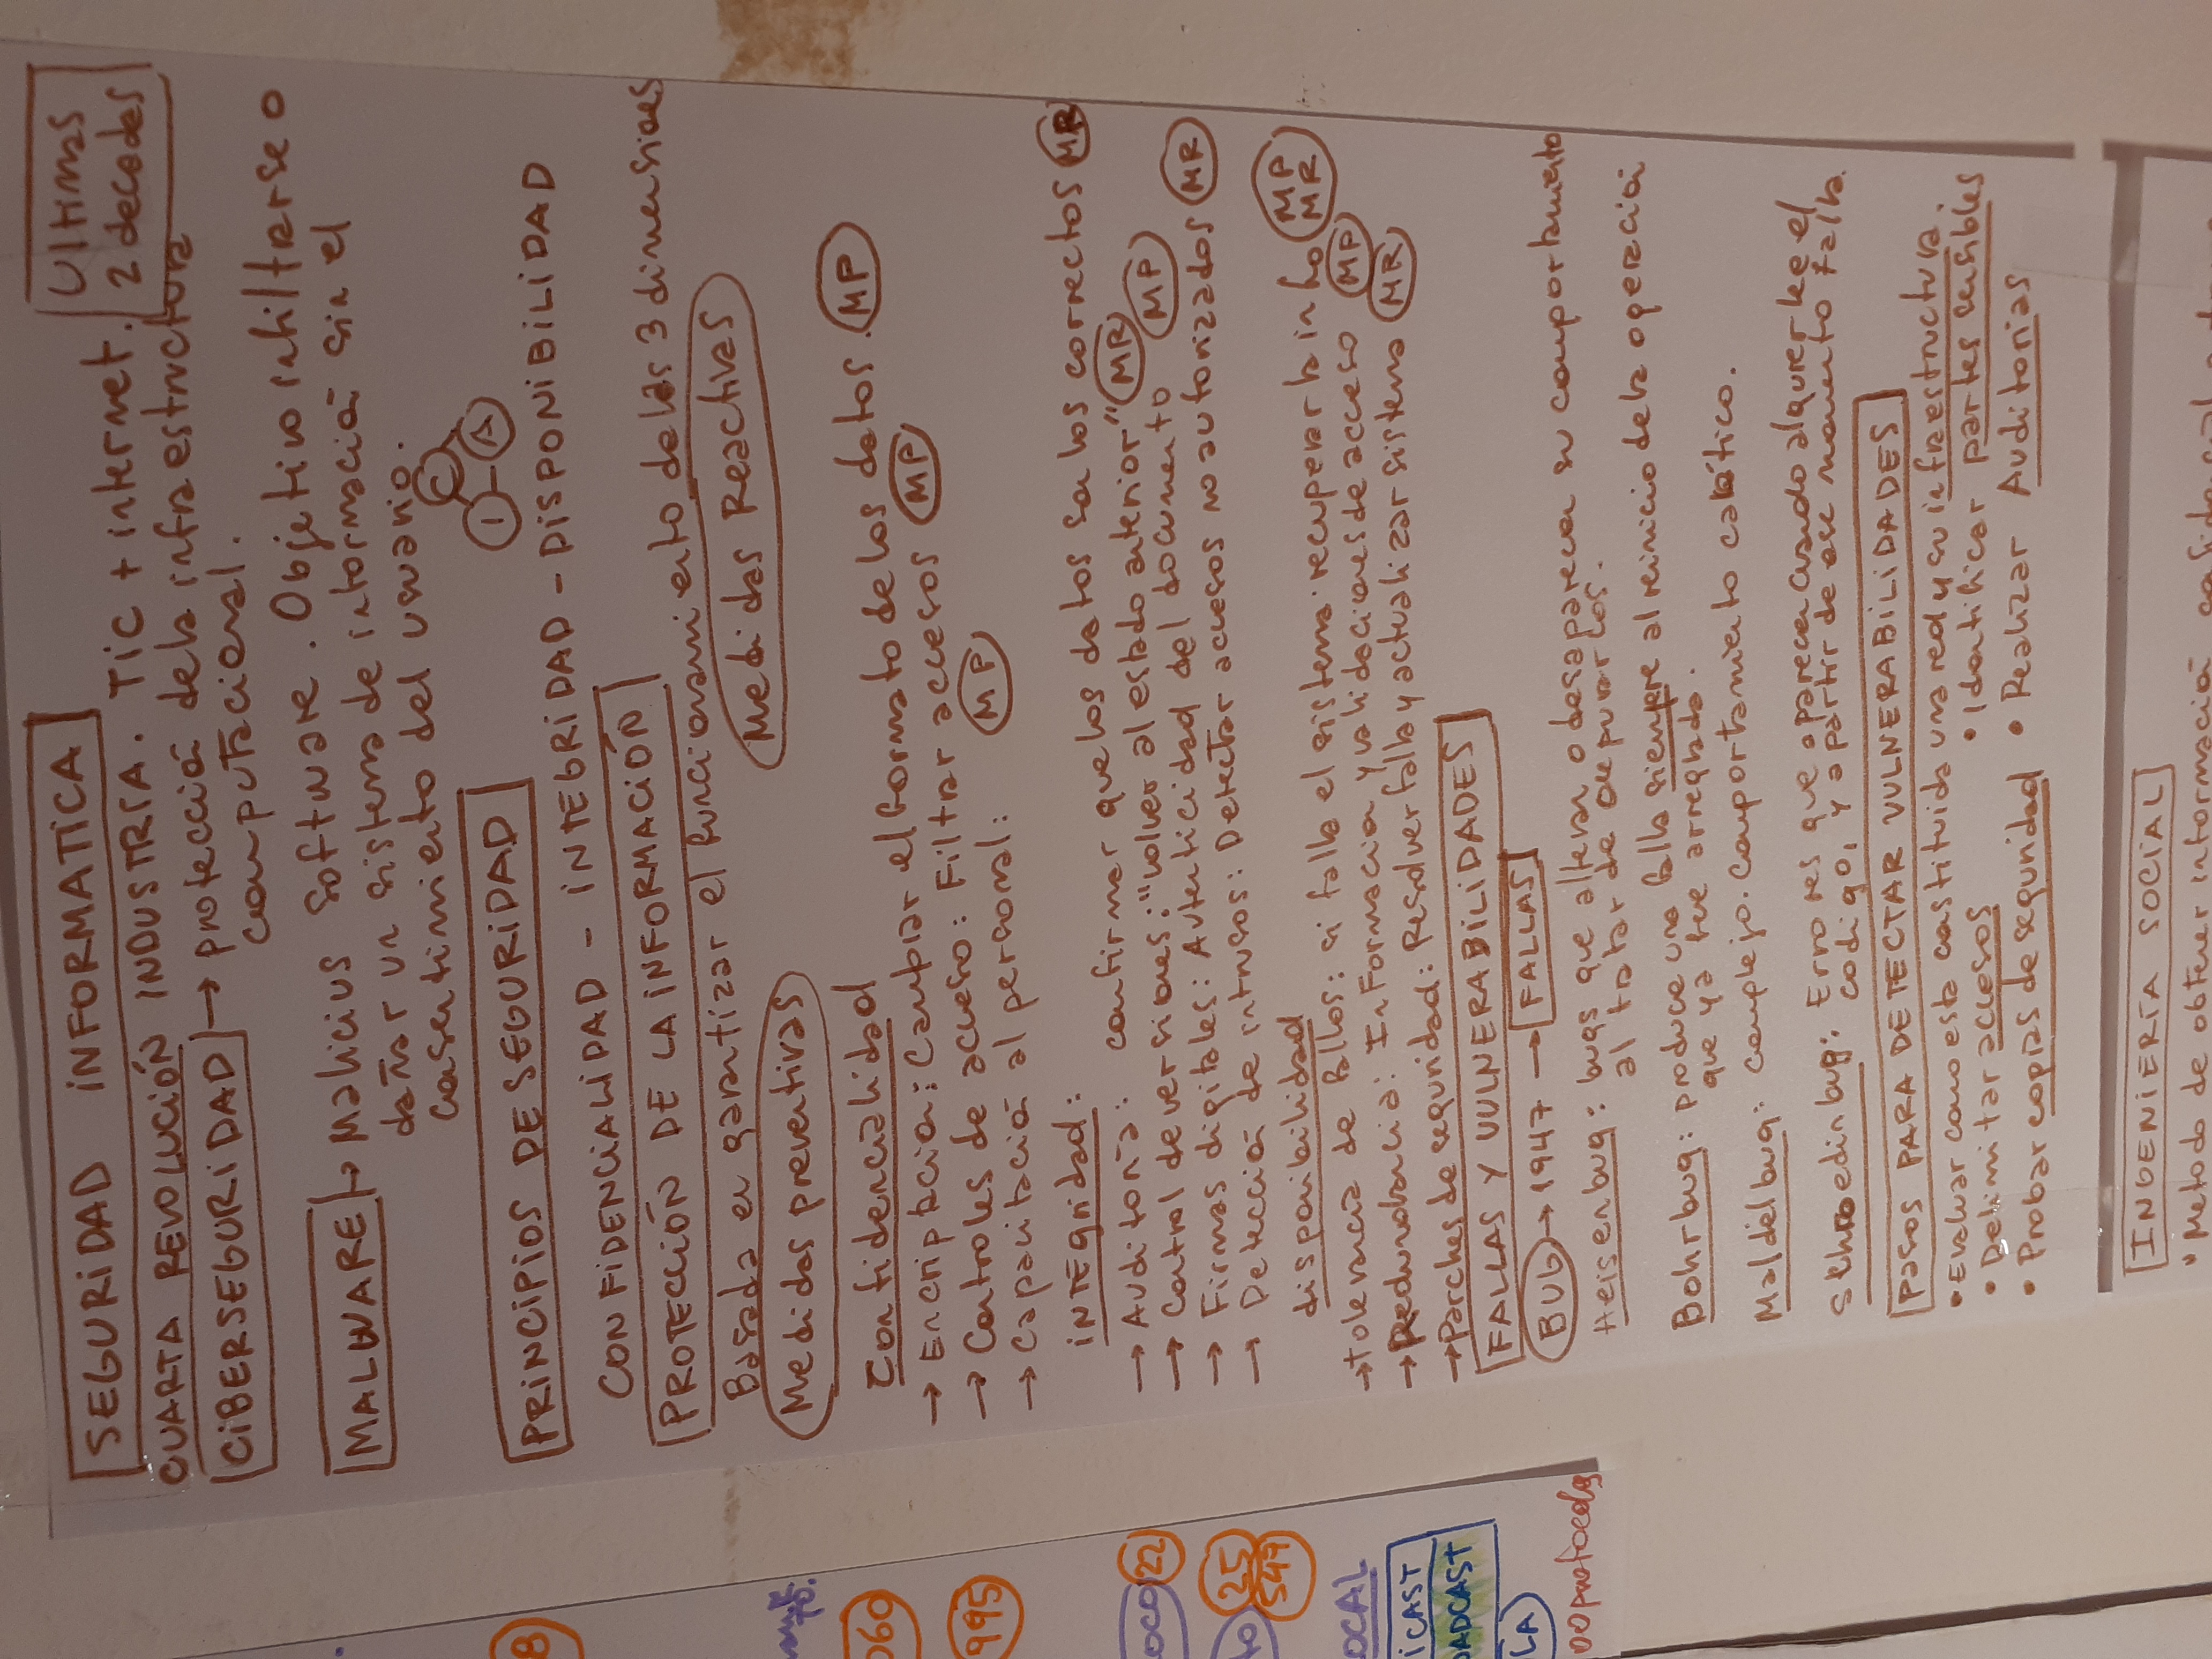 SEGURIDAD INFORMATICA
Ultimas
2 decadas
CUARTA REVOLUCIÓN INDUSTRIA. TIC + internet.
CIBERSEGURIDAD → protección de la infraestructura
computacional.
MALWARE → Malicius Software. Objetivo infiltrarse o
dañar un sistema de información sin el
consentimiento del usuario.
C
I - A
PRINCIPIOS DE SEGURIDAD
CONFIDENCIALIDAD - INTEGRIDAD - DISPONIBILIDAD
PROTECCIÓN DE LA INFORMACIÓN
Basada en garantizar el funcionamiento de las 3 dimensiones
Medidas preventivas
Medidas Reactivas
Confidencialidad
→ Encriptacion: Cambiar el formato de los datos. MP
→ Controles de acceso: Filtrar accesos MP
→ Capacitación al personal: MP
INTEgridad:
→ Auditoría: confirmar que los datos son los correctos MR
→ Control de versiones: "volver al estado anterior" MR
→ Firmas digitales: Autenticidad del documento MP
→ Detección de intrusos: Detectar accesos no autorizados MR
disponibilidad
→ tolerancia de fallos: si falla el sistema recuperar la info MP
MR
→ Redundancia: Informacion y validaciones de acceso MP
→ Parches de seguridad: Resolver falla y actualizar sistema MR
FALLAS Y VULNERABILIDADES
BUG → 1947 → FALLAS
Heisenbug: bugs que alteran o desaparecen su comportamiento
al tratar de depurarlos.
Bohrbug: produce una falla siempre al reinicio de la operación
que ya fue arreglada.
Maldelbug: Complejo. Comportamiento caótico.
Schroedinbug: Errores que aparecen cuando alguien lee el
codigo, y a partir de ese momento falla.
Pasos PARA DETECTAR VULNERABILIDADES
• Evaluar como esta constituida una red y su infraestructura.
• Delimitar accesos
• Identificar partes sensibles
• Probar copias de seguridad
• Realizar Auditorias
INGENIERÍA SOCIAL
• Metodo de obtener información
8
TO.
060
995
OCO 22
TO 25
547
OCAL
ICAST
OADCAST
LA